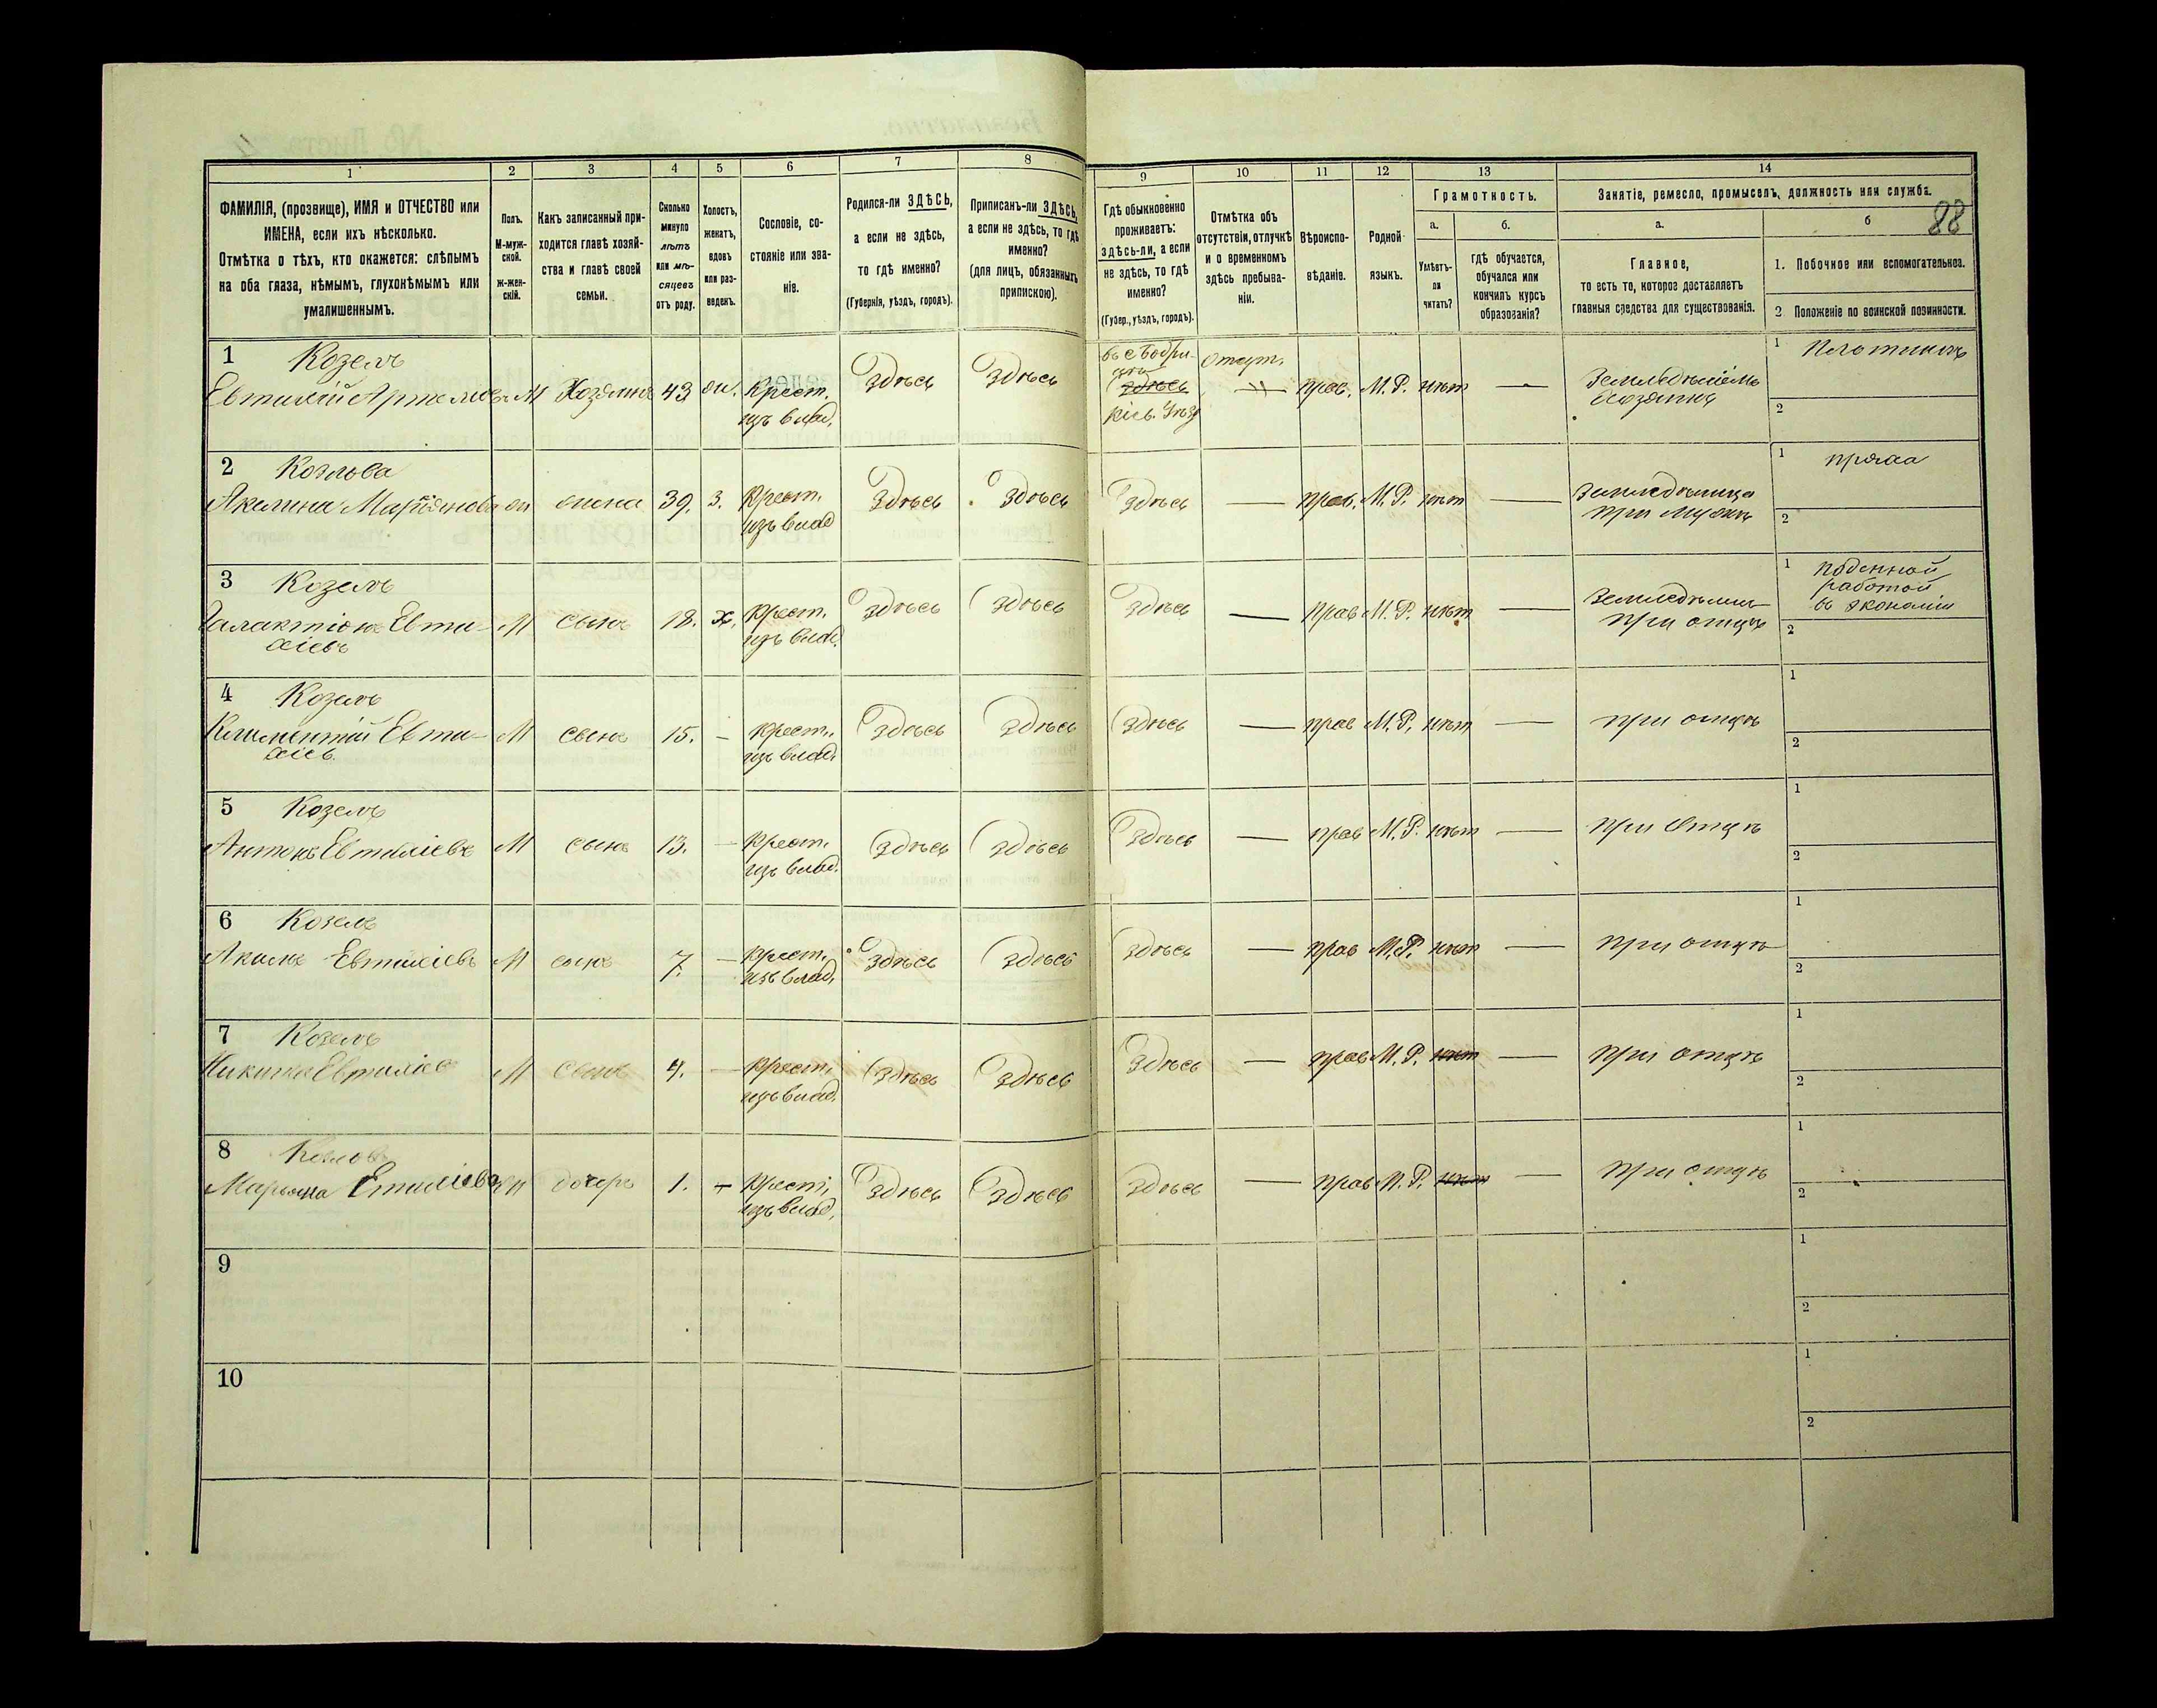 1 2 3 4 5 6 7 8 9 10 11 12 13 14
ФАМИЛІЯ, (прозвище), ИМЯ и ОТЧЕСТВО или
ИМЕНА, если ихъ нѣсколько.
Отмѣтка о тѣхъ, кто окажется: слѣпымъ
на оба глаза, нѣмымъ, глухонѣмымъ или
умалишеннымъ.
Полъ.
М-муж-
ской.
ж-жен-
скій.
Какъ записанный при-
ходится главѣ хозяй-
ства и главѣ своей
семьи.
Сколько
минуло
лѣтъ
или мѣ-
сяцевъ
отъ роду.
Холостъ,
женатъ,
вдовъ
или раз-
веденъ.
Сословіе, со-
стояніе или зва-
ніе.
Родился-ли ЗДѢСЬ,
а если не здѣсь,
то гдѣ именно?
(Губернія, уѣздъ, городъ).
Приписанъ-ли ЗДѢСЬ,
а если не здѣсь, то гдѣ
именно?
(для лицъ, обязанныхъ
припискою).
Гдѣ обыкновенно
проживаетъ:
здѣсь-ли, а если
не здѣсь, то гдѣ
именно?
(Губер., уѣздъ, городъ).
Отмѣтка объ
отсутствіи, отлучкѣ
и о временномъ
здѣсь пребыва-
ніи.
Вѣроиспо-
вѣданіе.
Родной
языкъ.
Грамотность.
а. б.
Умѣетъ-
ли
читать?
гдѣ обучается,
обучался или
кончилъ курсъ
образованія?
Занятіе, ремесло, промыселъ, должность или служба.
88
а. б
Главное,
то есть то, которое доставляетъ
главныя средства для существованія.
1. Побочное или вспомогательное.
2 Положеніе по воинской повинности.
1 Козелъ
Евтихій Артемовъ М Хозяинъ 43 ж. Крест.
изъ влад.
Здѣсь Здѣсь
Здѣсь
Отсут.
прав. М.Р. нѣт — Земледѣліемъ
хозяинъ
1 Плотникъ
2
2 Козлова
Акилина ж жена 39. З. Крест.
изъ влад
Здѣсь Здѣсь Здѣсь — прав. М.Р. нѣт — Земледѣлица
при мужѣ
1 пряха
2
3 Козелъ
Галактіонъ Евти-
хіевъ
М сынъ 18. х. Крест.
изъ влад.
Здѣсь Здѣсь Здѣсь — прав М.Р. нѣт —
при отцѣ
1 поденной
работой
въ экономіи
2
4 Козелъ
Климентій Евти-
хіев
М сынъ 15. — Крест.
изъ влад.
Здѣсь Здѣсь Здѣсь — прав М.Р. нѣт — при отцѣ
1
2
5 Козелъ
Антонъ Евтихіевъ М сынъ 13. — Крест.
изъ влад.
Здѣсь Здѣсь Здѣсь — прав М.Р. нѣт — при отцѣ
1
2
6 Козелъ
Акимъ Евтихіевъ М сынъ 7. — Крест.
изъ влад.
Здѣсь Здѣсь Здѣсь — прав М.Р. нѣт — при отцѣ
1
2
7 Козелъ
Никита Евтихіев М сынъ 4. — Крест.
изъ влад.
Здѣсь Здѣсь Здѣсь — прав М.Р. нѣт — при отцѣ
1
2
8
Марьяна ж дочерь 1. — Крест.
изъ влад.
Здѣсь Здѣсь Здѣсь — прав М.Р. нѣт — при отцѣ
1
2
9
1
2
10
1
2